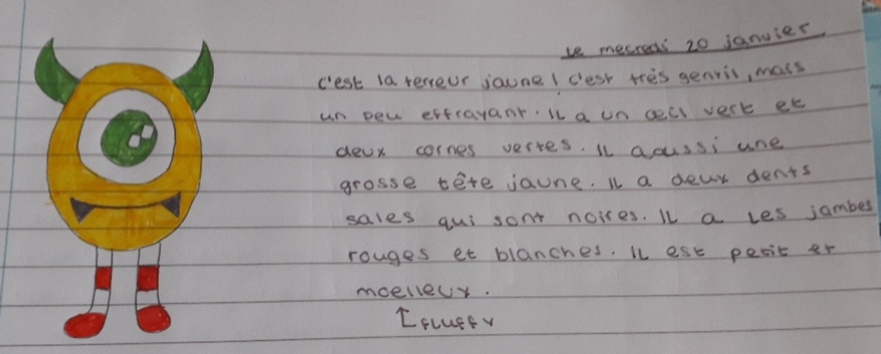 le mecredi 20 janvier
c'est la terreur jaune! c'est très gentil, mais
un peu effrayant. Il a un œil vert et
deux cornes vertes. Il a aussi une
grosse tête jaune. Il a deux dents
sales qui sont noires. Il a les jambes
rouges et blanches. Il est petit et
moelleux.
↑ fluffy